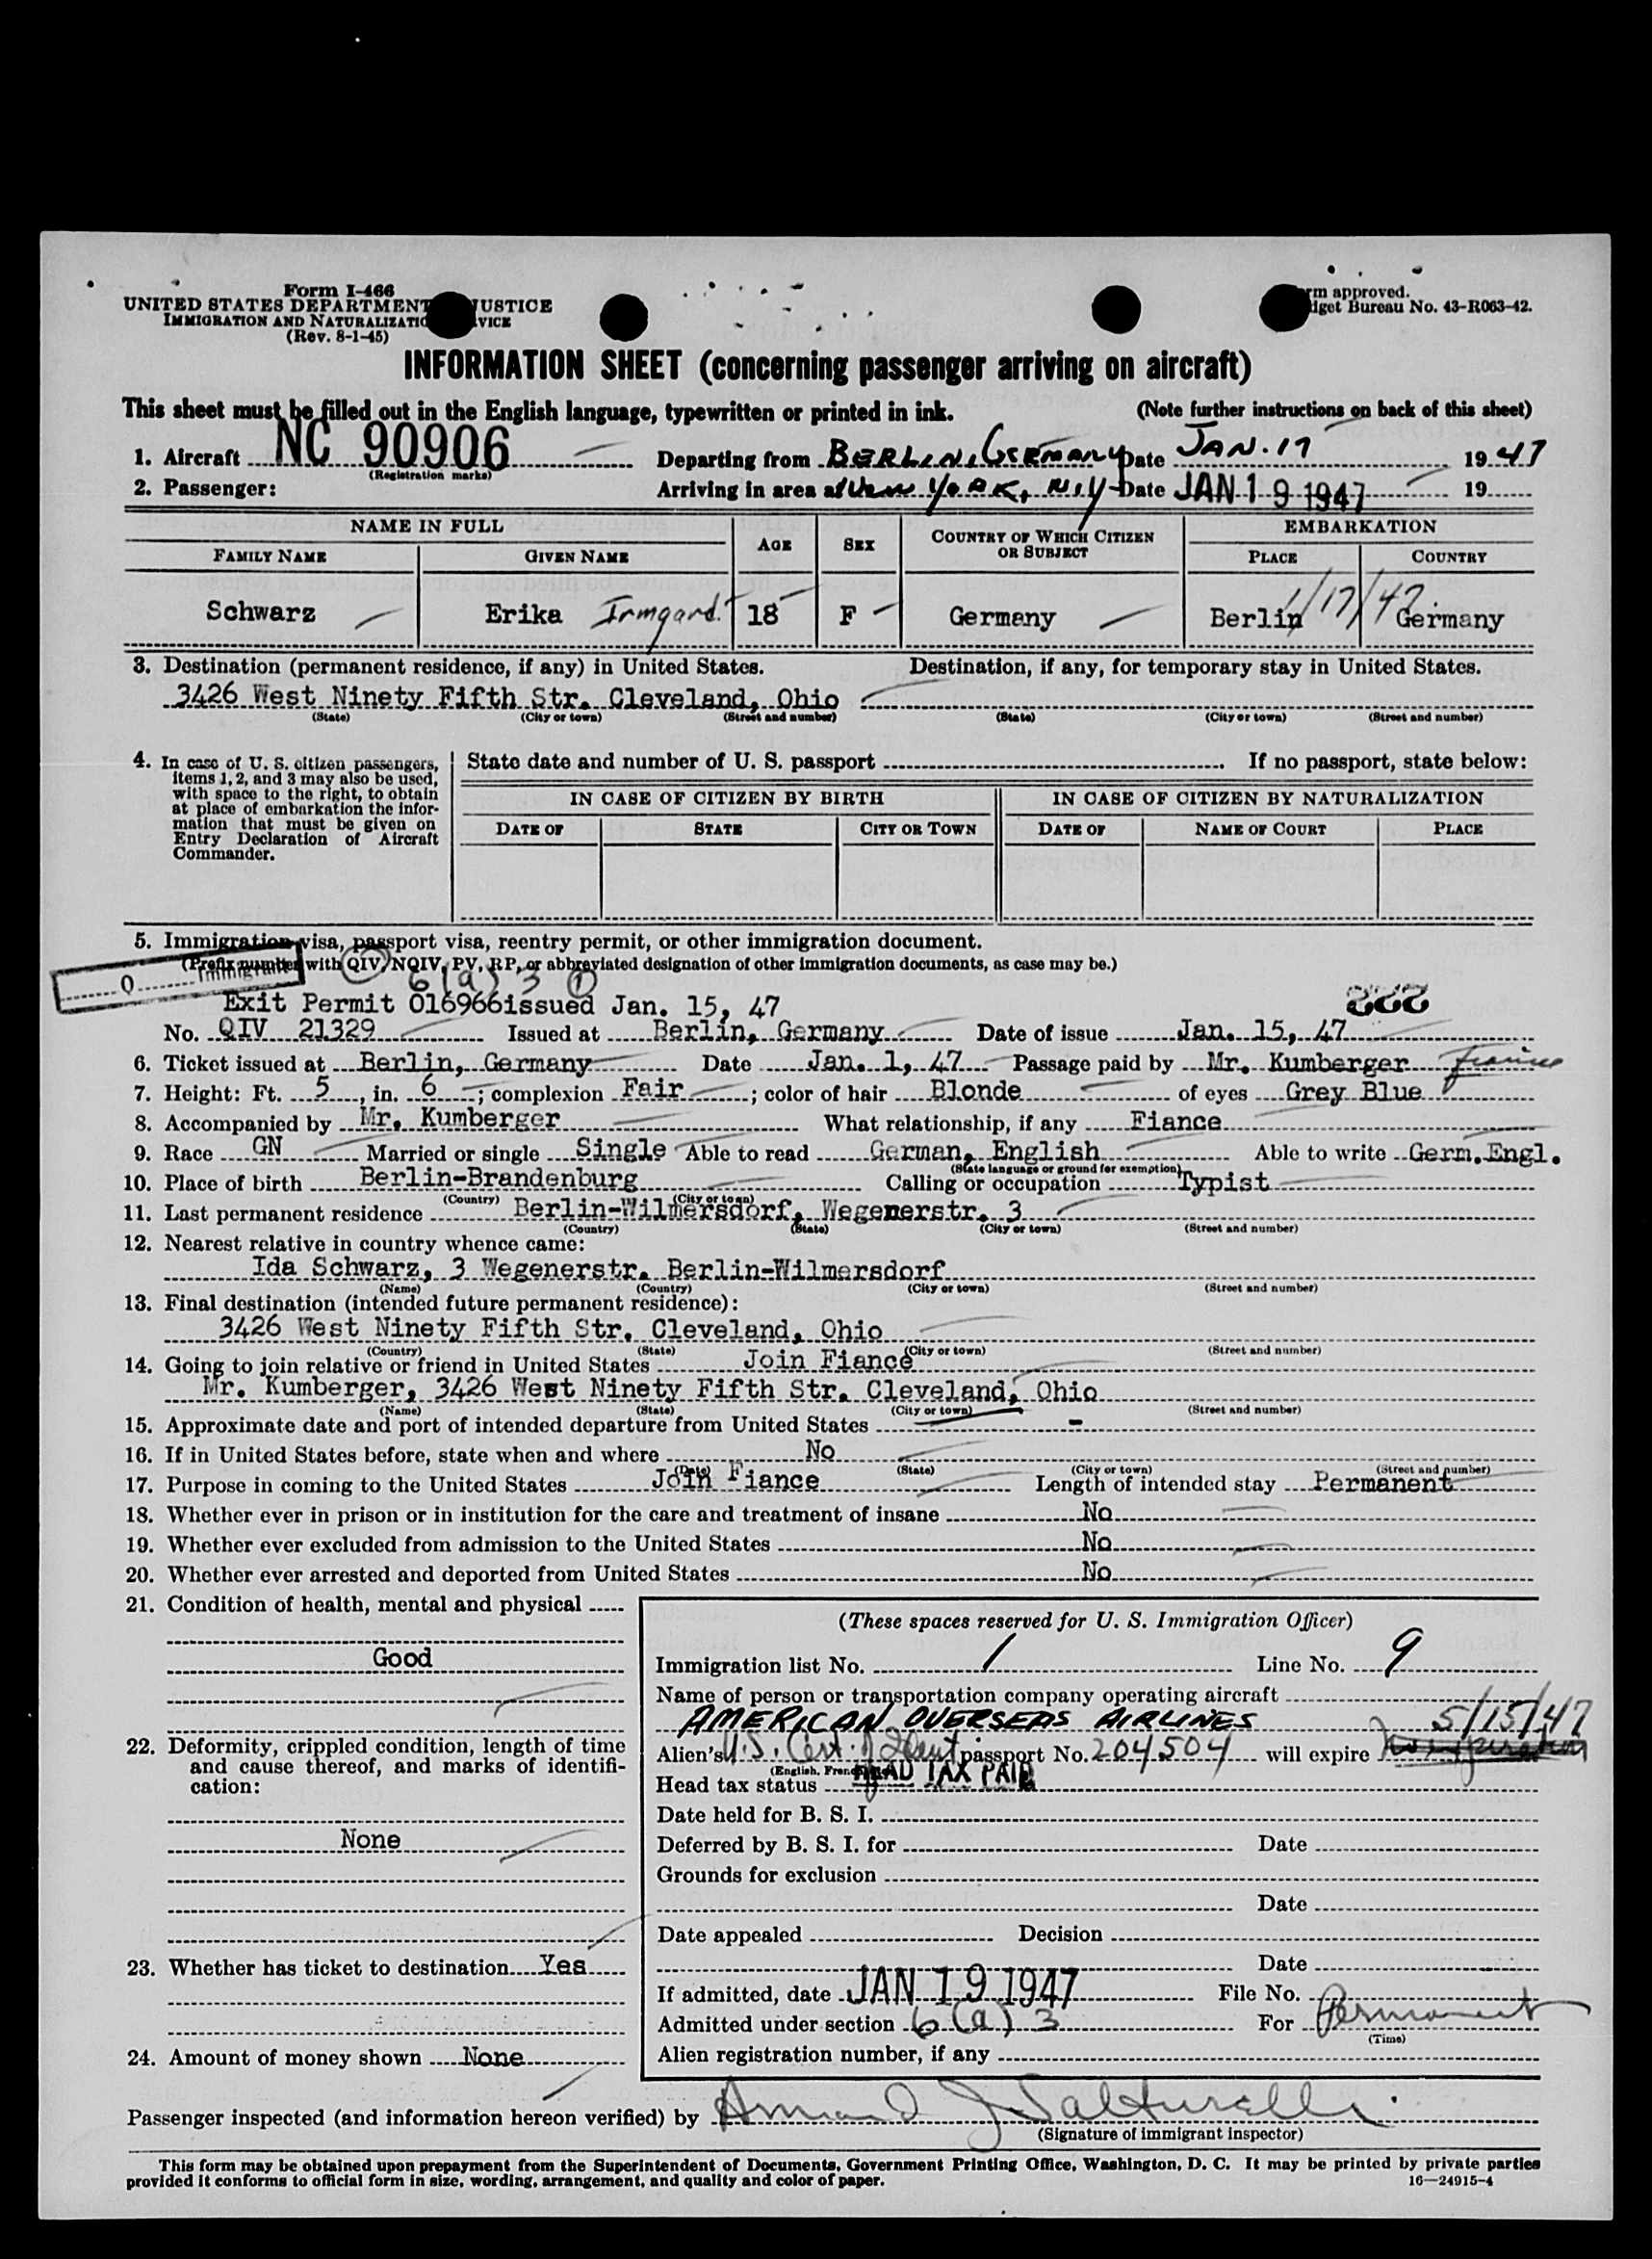 Form I-466
UNITED STATES DEPARTMENT JUSTICE
IMMIGRATION AND NATURALIZATIO VICE
(Rev. 8-1-45)
rm approved.
dget Bureau No. 43-R063-42.
INFORMATION SHEET (concerning passenger arriving on aircraft)
This sheet must be filled out in the English language, typewritten or printed in ink. (Note further instructions on back of this sheet)
1. Aircraft NC 90906 Departing from BERLIN, GERMANY Date JAN. 17 1947
(Registration marks)
2. Passenger: Arriving in area at NEW YORK, N.Y. Date JAN 19 1947 19
NAME IN FULL AGE SEX COUNTRY OF WHICH CITIZEN OR SUBJECT EMBARKATION
FAMILY NAME GIVEN NAME PLACE COUNTRY
Schwarz Erika Irmgard. 18 F Germany Berlin 1/17/47. Germany
3. Destination (permanent residence, if any) in United States. Destination, if any, for temporary stay in United States.
3426 West Ninety Fifth Str. Cleveland, Ohio
(State) (City or town) (Street and number) (State) (City or town) (Street and number)
4. In case of U. S. citizen passengers, items 1, 2, and 3 may also be used, with space to the right, to obtain at place of embarkation the information that must be given on Entry Declaration of Aircraft Commander.
State date and number of U. S. passport If no passport, state below:
IN CASE OF CITIZEN BY BIRTH IN CASE OF CITIZEN BY NATURALIZATION
DATE OF STATE CITY OR TOWN DATE OF NAME OF COURT PLACE
5. Immigration visa, passport visa, reentry permit, or other immigration document.
(Prefix number with QIV, NQIV, PV, RP, or abbreviated designation of other immigration documents, as case may be.)
Q Immigrant 6(a)3 1
Exit Permit 016966issued Jan. 15, 47 888
No. QIV 21329 Issued at Berlin, Germany Date of issue Jan. 15, 47
6. Ticket issued at Berlin, Germany Date Jan. 1, 47 Passage paid by Mr. Kumberger fiance
7. Height: Ft. 5, in. 6; complexion Fair; color of hair Blonde of eyes Grey Blue
8. Accompanied by Mr. Kumberger What relationship, if any Fiance
9. Race GN Married or single Single Able to read German, English Able to write Germ.Engl.
(State language or ground for exemption)
10. Place of birth Berlin-Brandenburg Calling or occupation Typist
(Country) (City or town)
11. Last permanent residence Berlin-Wilmersdorf, Wegenerstr. 3
(Country) (State) (City or town) (Street and number)
12. Nearest relative in country whence came:
Ida Schwarz, 3 Wegenerstr. Berlin-Wilmersdorf
(Name) (Country) (City or town) (Street and number)
13. Final destination (intended future permanent residence):
3426 West Ninety Fifth Str. Cleveland, Ohio
(Country) (State) (City or town) (Street and number)
14. Going to join relative or friend in United States Join Fiance
Mr. Kumberger, 3426 West Ninety Fifth Str. Cleveland, Ohio
(Name) (State) (City or town) (Street and number)
15. Approximate date and port of intended departure from United States -
16. If in United States before, state when and where No
(Date) (State) (City or town) (Street and number)
17. Purpose in coming to the United States Join Fiance Length of intended stay Permanent
18. Whether ever in prison or in institution for the care and treatment of insane No
19. Whether ever excluded from admission to the United States No
20. Whether ever arrested and deported from United States No
21. Condition of health, mental and physical
Good
22. Deformity, crippled condition, length of time and cause thereof, and marks of identification:
None
23. Whether has ticket to destination Yes
24. Amount of money shown None
(These spaces reserved for U. S. Immigration Officer)
Immigration list No. 1 Line No. 9
Name of person or transportation company operating aircraft
AMERICAN OVERSEAS AIRLINES 5/15/47
Alien's U.S. Cert. of Ident passport No. 204504 will expire
(English, French
Head tax status HEAD TAX PAID
Date held for B. S. I.
Deferred by B. S. I. for Date
Grounds for exclusion
Date
Date appealed Decision
Date
If admitted, date JAN 19 1947 File No.
Admitted under section 6(a)3 For Permanent
(Time)
Alien registration number, if any
Passenger inspected (and information hereon verified) by Armand J.
(Signature of immigrant inspector)
This form may be obtained upon prepayment from the Superintendent of Documents, Government Printing Office, Washington, D. C. It may be printed by private parties
provided it conforms to official form in size, wording, arrangement, and quality and color of paper. 16—24915-4